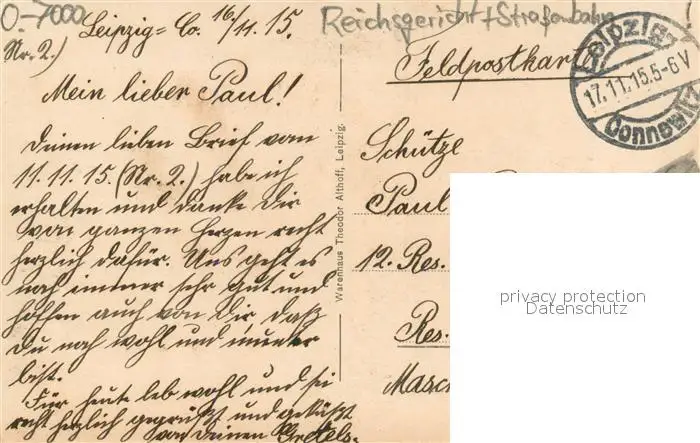 O-7000
Reichsgericht + Straßenbahn
Leipzig-Co. 16/11.15.
Nr. 2.)
Mein lieber Paul!
Deinen lieben Brief vom
11.11.15. (Nr. 2.) habe ich
erhalten und danke Dir
von ganzem Herzen recht
herzlich dafür. Uns geht es
noch immer sehr gut und
hoffen auch von Dir daß
Du noch wohl und munter
bist.
Für heute leb wohl und sei
recht herzlich gegrüßt und geküßt
von Deinen
Warenhaus Theodor Althoff, Leipzig.
Feldpostkarte
Leipzig
17.11.15.5-6V
Connewitz
Schütze
Paul
12. Res.
Res.
Masch
privacy protection
Datenschutz